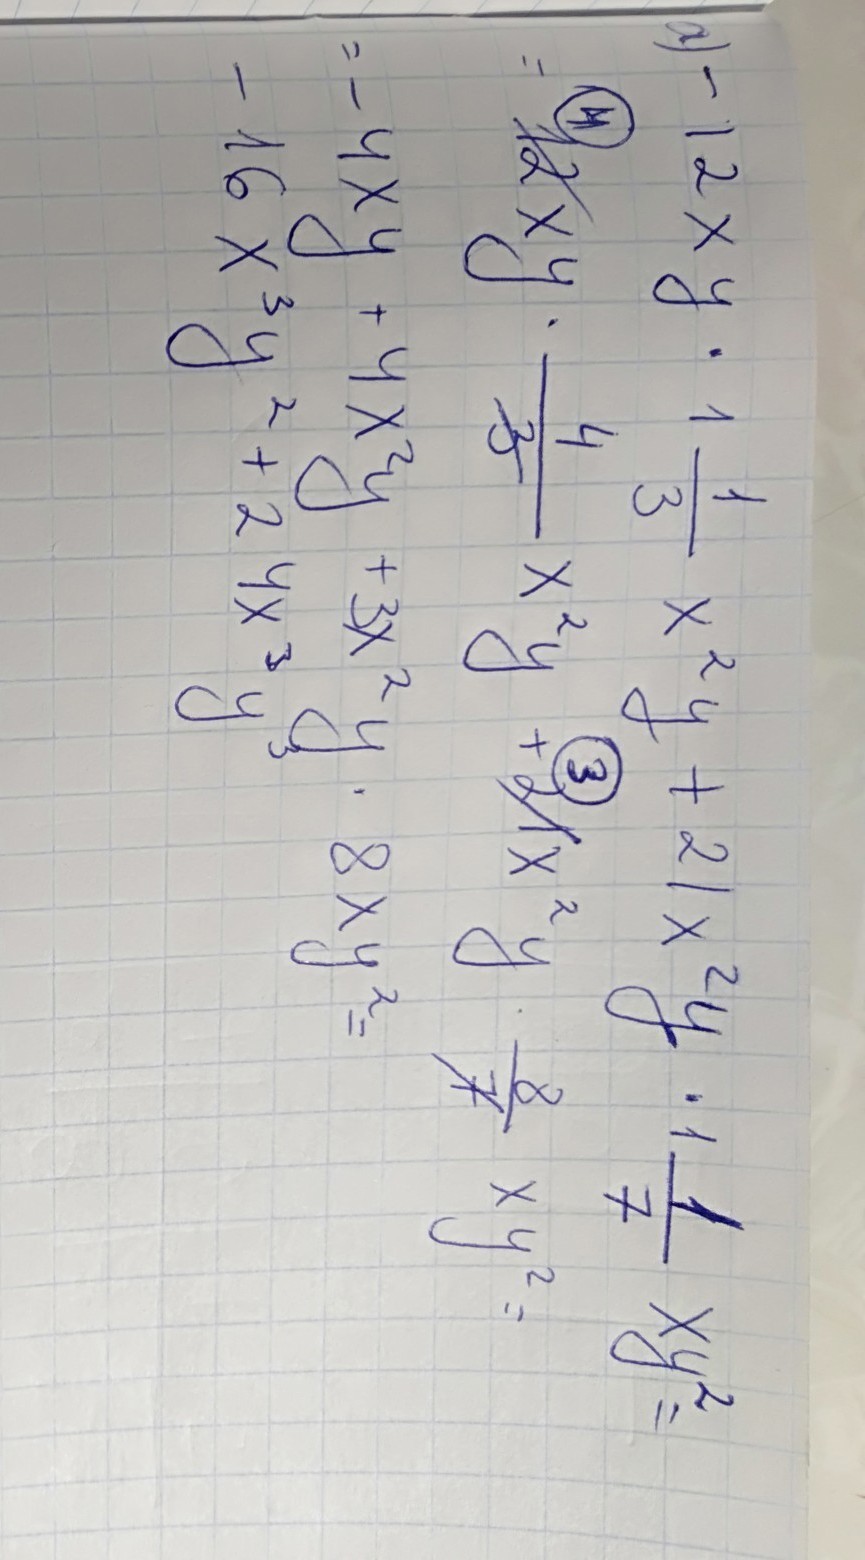 а) -12xy · 1 1/3 x²y + 21x²y · 1 1/7 xy² =
= 12xy · 4/3 x²y + 21x²y · 8/7 xy² =
4 3
= -4xy + 4x²y + 3x²y · 8xy² =
-16x³y² + 24x³y³